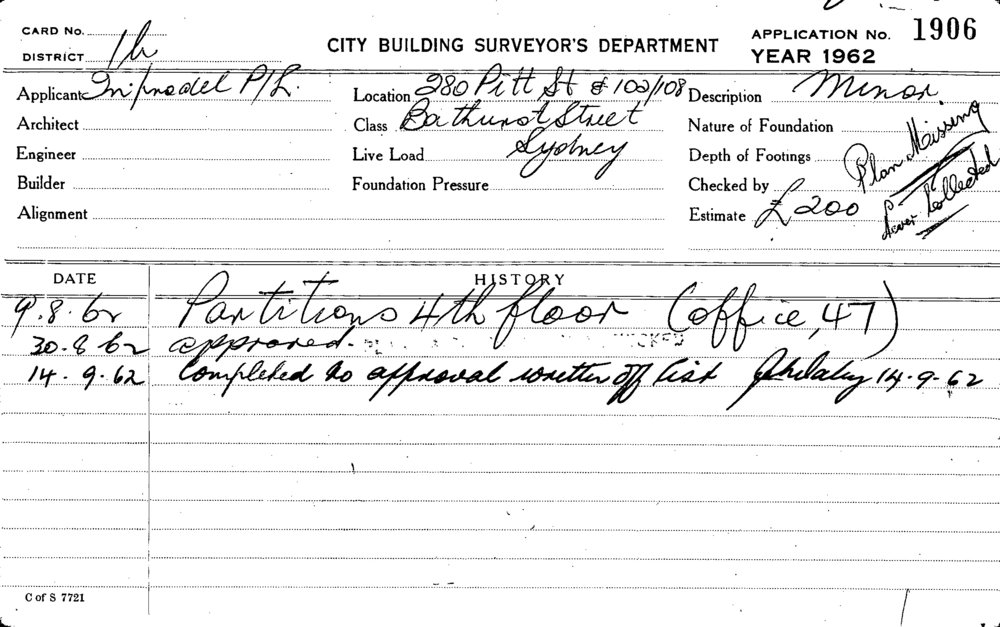 CARD No.
DISTRICT 1h
CITY BUILDING SURVEYOR'S DEPARTMENT
APPLICATION No. 1906
YEAR 1962
Applicant P/L.
Architect
Engineer
Builder
Alignment
Location 280 Pitt St & 102/108
Class Bathurst Street
Live Load Sydney
Foundation Pressure
Description Minor.
Nature of Foundation
Depth of Footings
Checked by
Estimate £200
Plan Missing
Never Collected
DATE HISTORY
9.8.62 Partitions 4th floor (office, 47)
30.8.62 approved.
14.9.62 Completed to approval written off list 14.9.62
C of S 7721